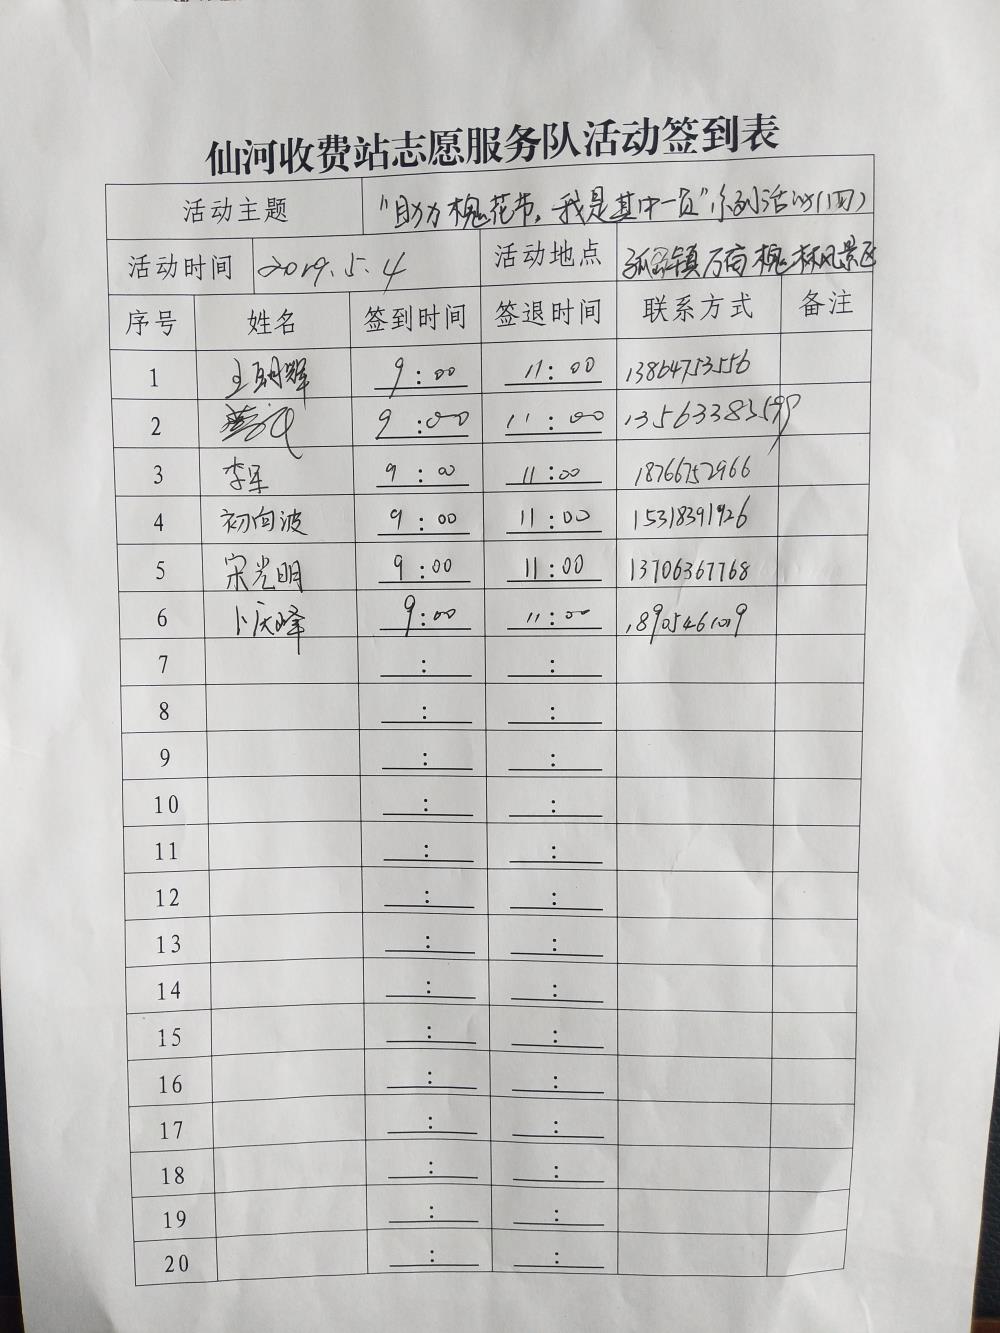 仙河收费站志愿服务队活动签到表
活动主题 "助力槐花节,我是其中一员"系列活动(四)
活动时间 2019.5.4 活动地点 孤岛镇万亩槐林风景区
序号 姓名 签到时间 签退时间 联系方式 备注
1 王明辉 9:00 11:00 13864753556
2 9:00 11:00
3 李军 9:00 11:00 18766752966
4 初向波 9:00 11:00 15318391926
5 宋光明 9:00 11:00 13706367768
6 卜庆峰 9:00 11:00
7 : :
8 : :
9 : :
10 : :
11 : :
12 : :
13 : :
14 : :
15 : :
16 : :
17 : :
18 : :
19 : :
20 : :